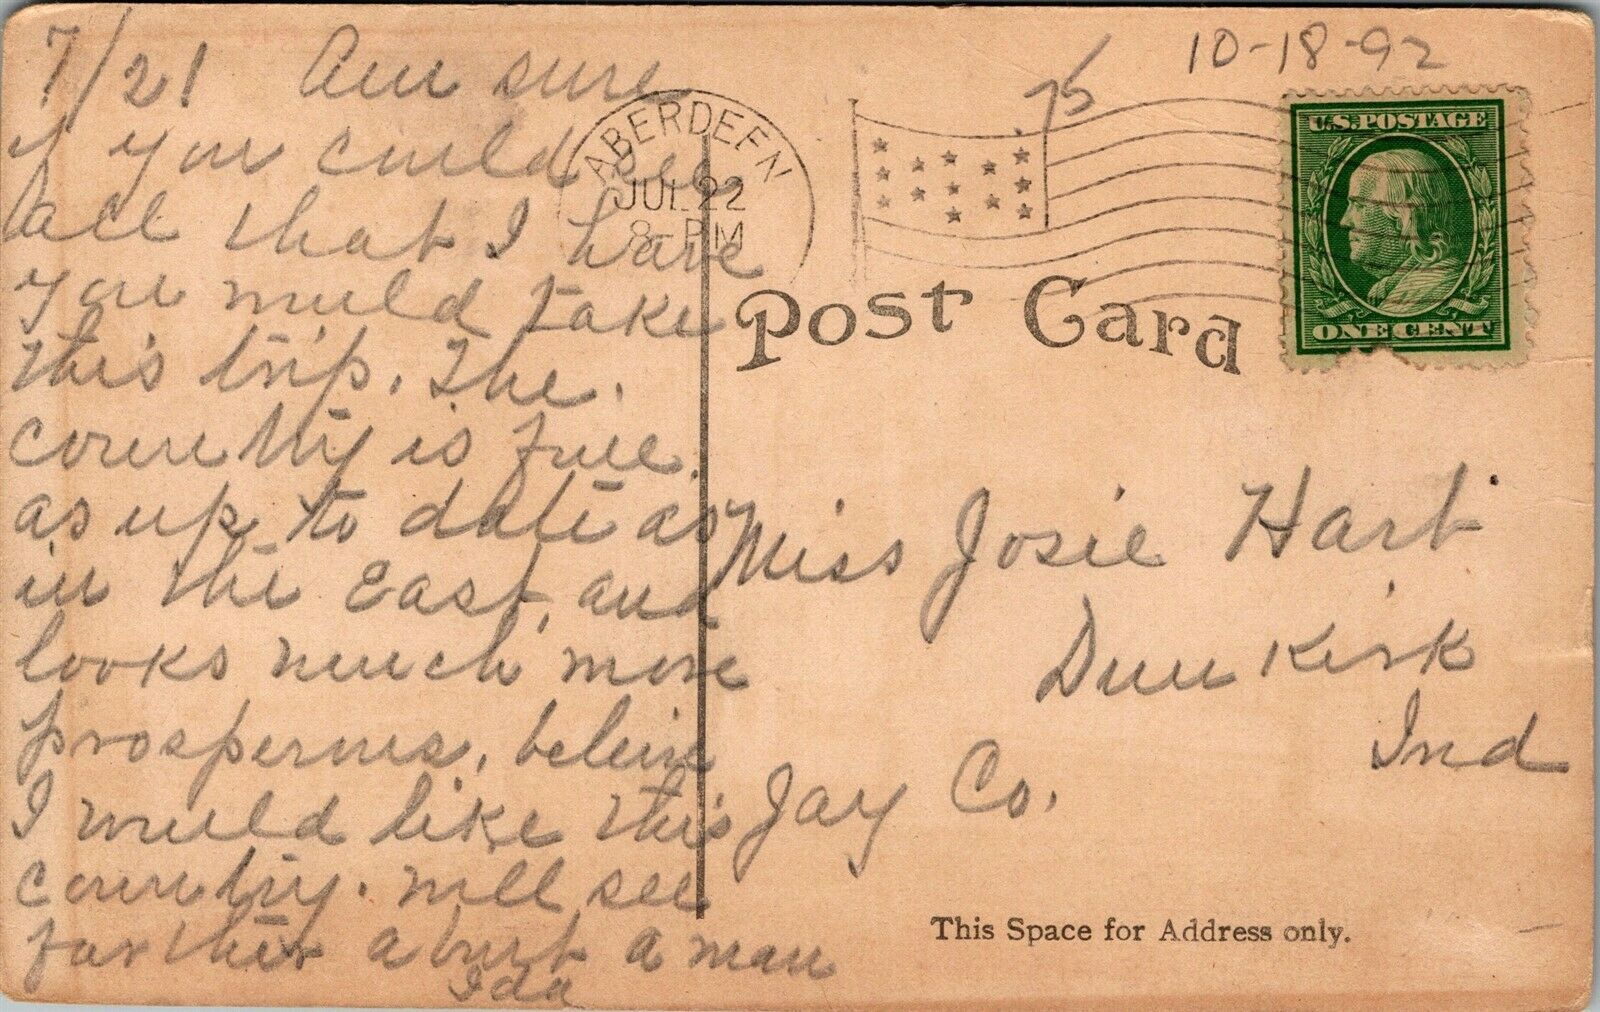 7/21 Am sure
if you could see
all that I have
you would take
this trip. The
country is fine
as up to date as
in the East, and
looks much more
prosperous, believe
I would like this
country. Will see
farther about a man
Ida
ABERDEEN
JUL 22
8-PM
75
10-18-92
U.S. POSTAGE
ONE CENT
Post Card
Miss Josie Hart
Dunkirk
Ind
Jay Co.
This Space for Address only.